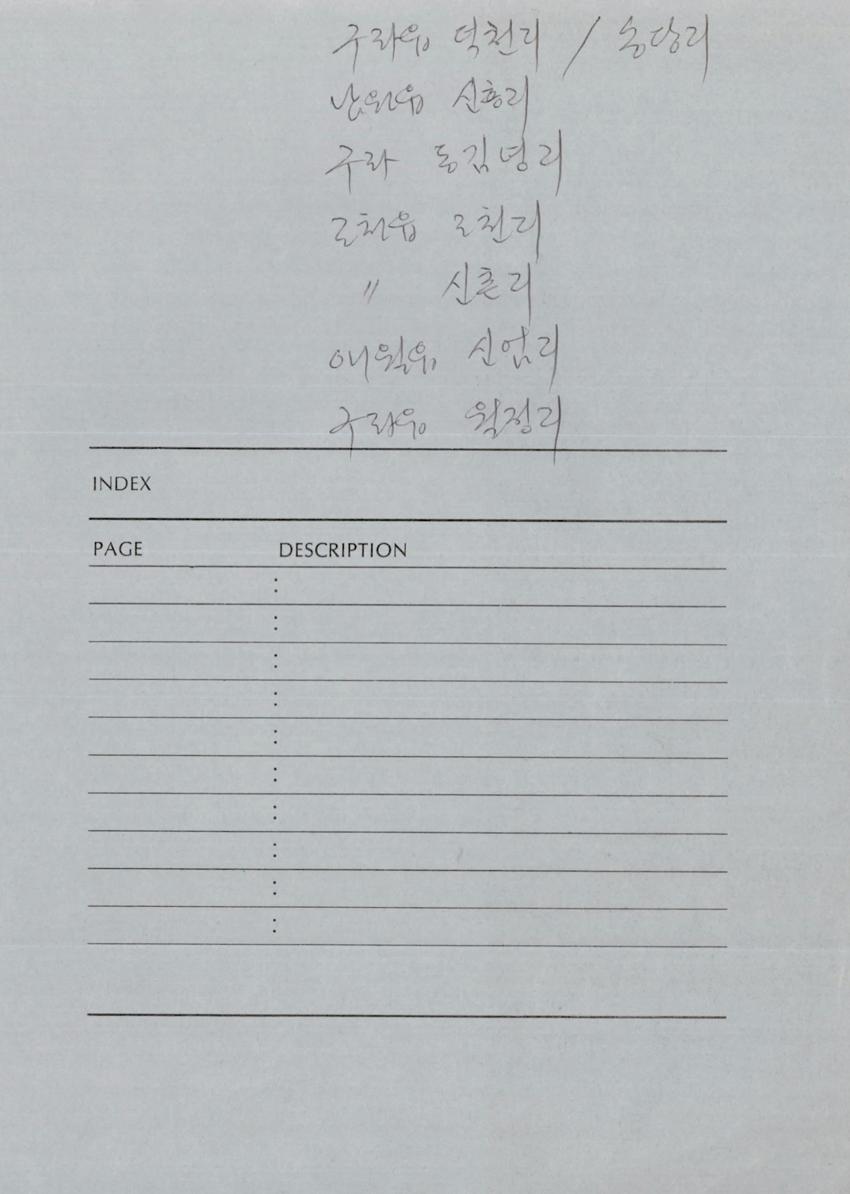 구좌읍 덕천리 / 송당리
남원읍 신흥리
구좌 동김녕리
조천읍 조천리
〃 신촌리
애월읍 신엄리
구좌읍 월정리
INDEX
PAGE DESCRIPTION
:
:
:
:
:
:
:
:
:
: